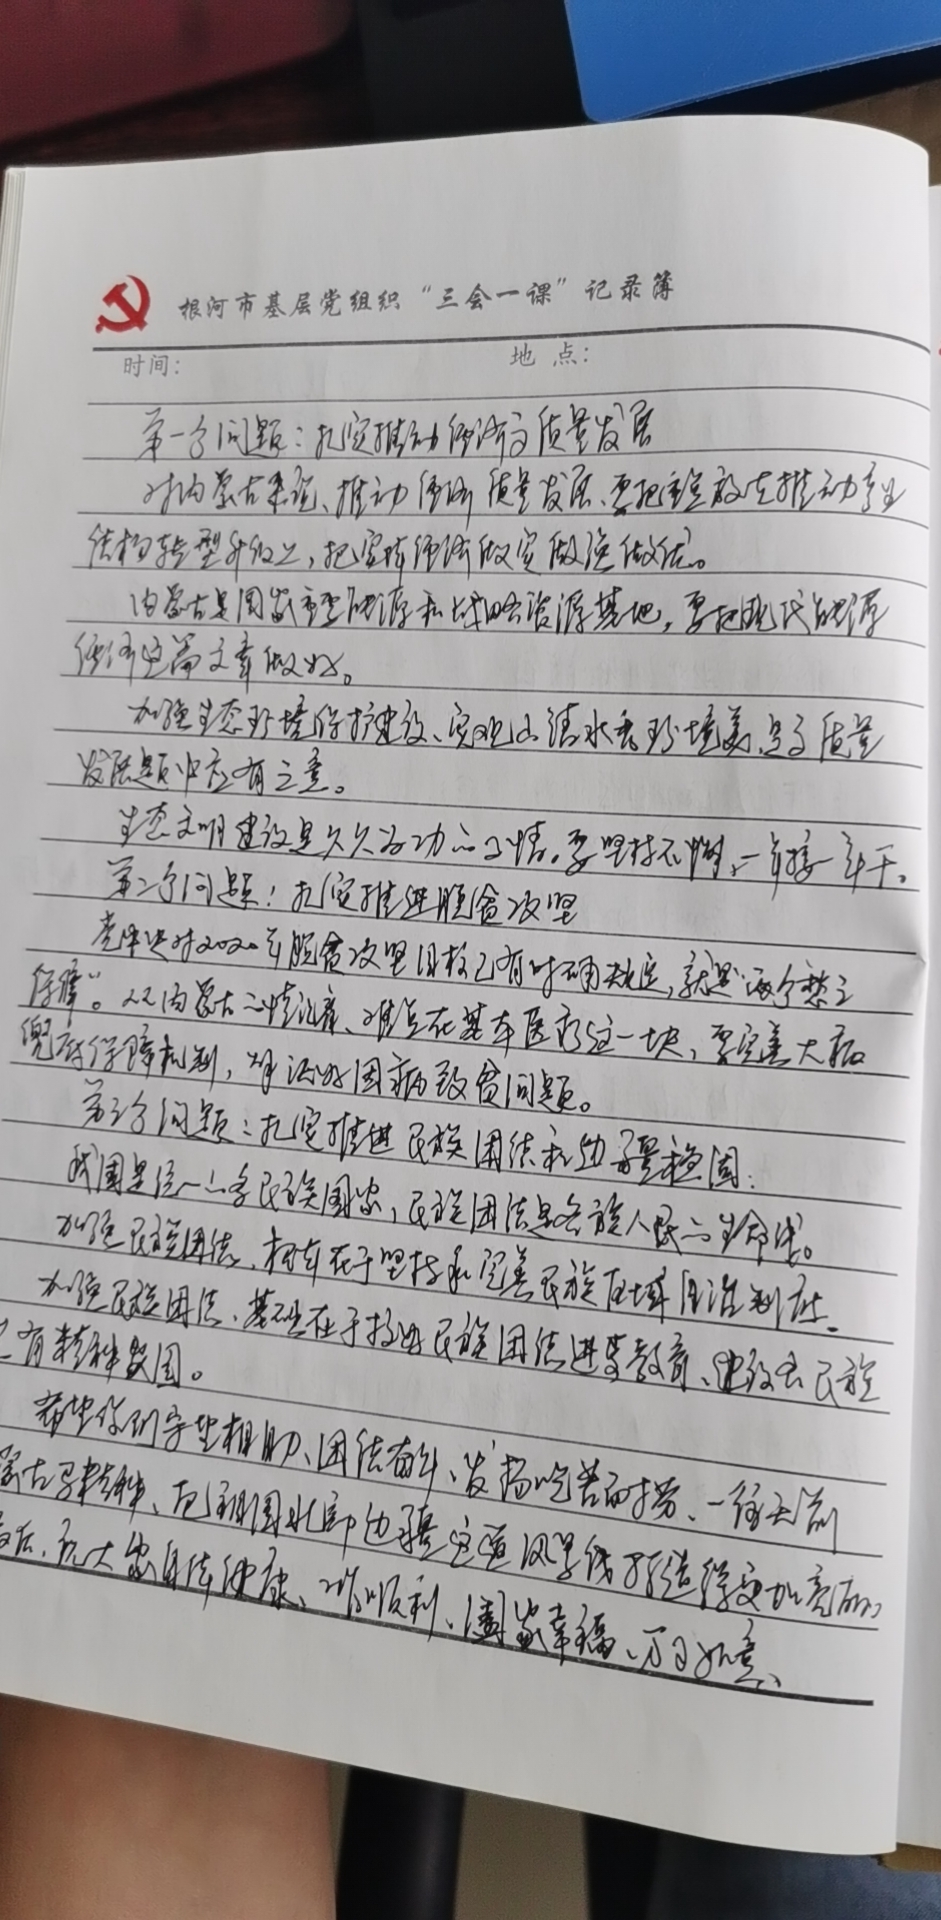 根河市基层党组织“三会一课”记录簿
时间: 地点:
第一个问题：扎实推动经济高质量发展
对内蒙古来说、推动经济高质量发展、要把重点放在推动产业
结构转型升级上，把实体经济做实做强做优。
内蒙古是国家重要能源和战略资源基地，要把现代能源
经济这篇文章做好。
加强生态环境保护建设、实现山清水秀环境美、是高质量
发展题中应有之意。
生态文明建设是久久为功的事情。要坚持不懈、一年接一年干。
第二个问题：扎实推进脱贫攻坚
党中央对2020年脱贫攻坚目标已有明确规定，就是“两个想三
保障”。从内蒙古的情况看、难点在基本医疗这一块，要完善大病
兜底保障机制，解决好因病致贫问题。
第三个问题：扎实推进民族团结和边疆稳固：
我国是统一的多民族国家，民族团结是各族人民的生命线。
加强民族团结、根本在于坚持和完善民族区域自治制度。
加强民族团结、基础在于搞好民族团结进步教育、建设各民族
共有精神家园。
希望你们守望相助、团结奋斗、发扬吃苦耐劳、一往无前
蒙古马精神、把祖国北部边疆这道风景线打造得更加亮丽。
最后、祝大家身体健康、工作顺利、阖家幸福、万事如意、